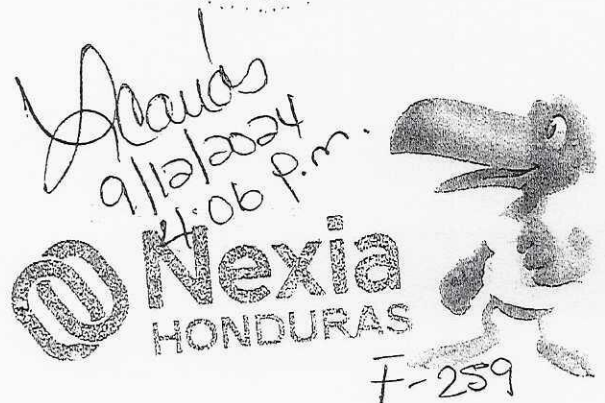 9/12/2024
4:06 p.m.
Nexia
HONDURAS
F-259